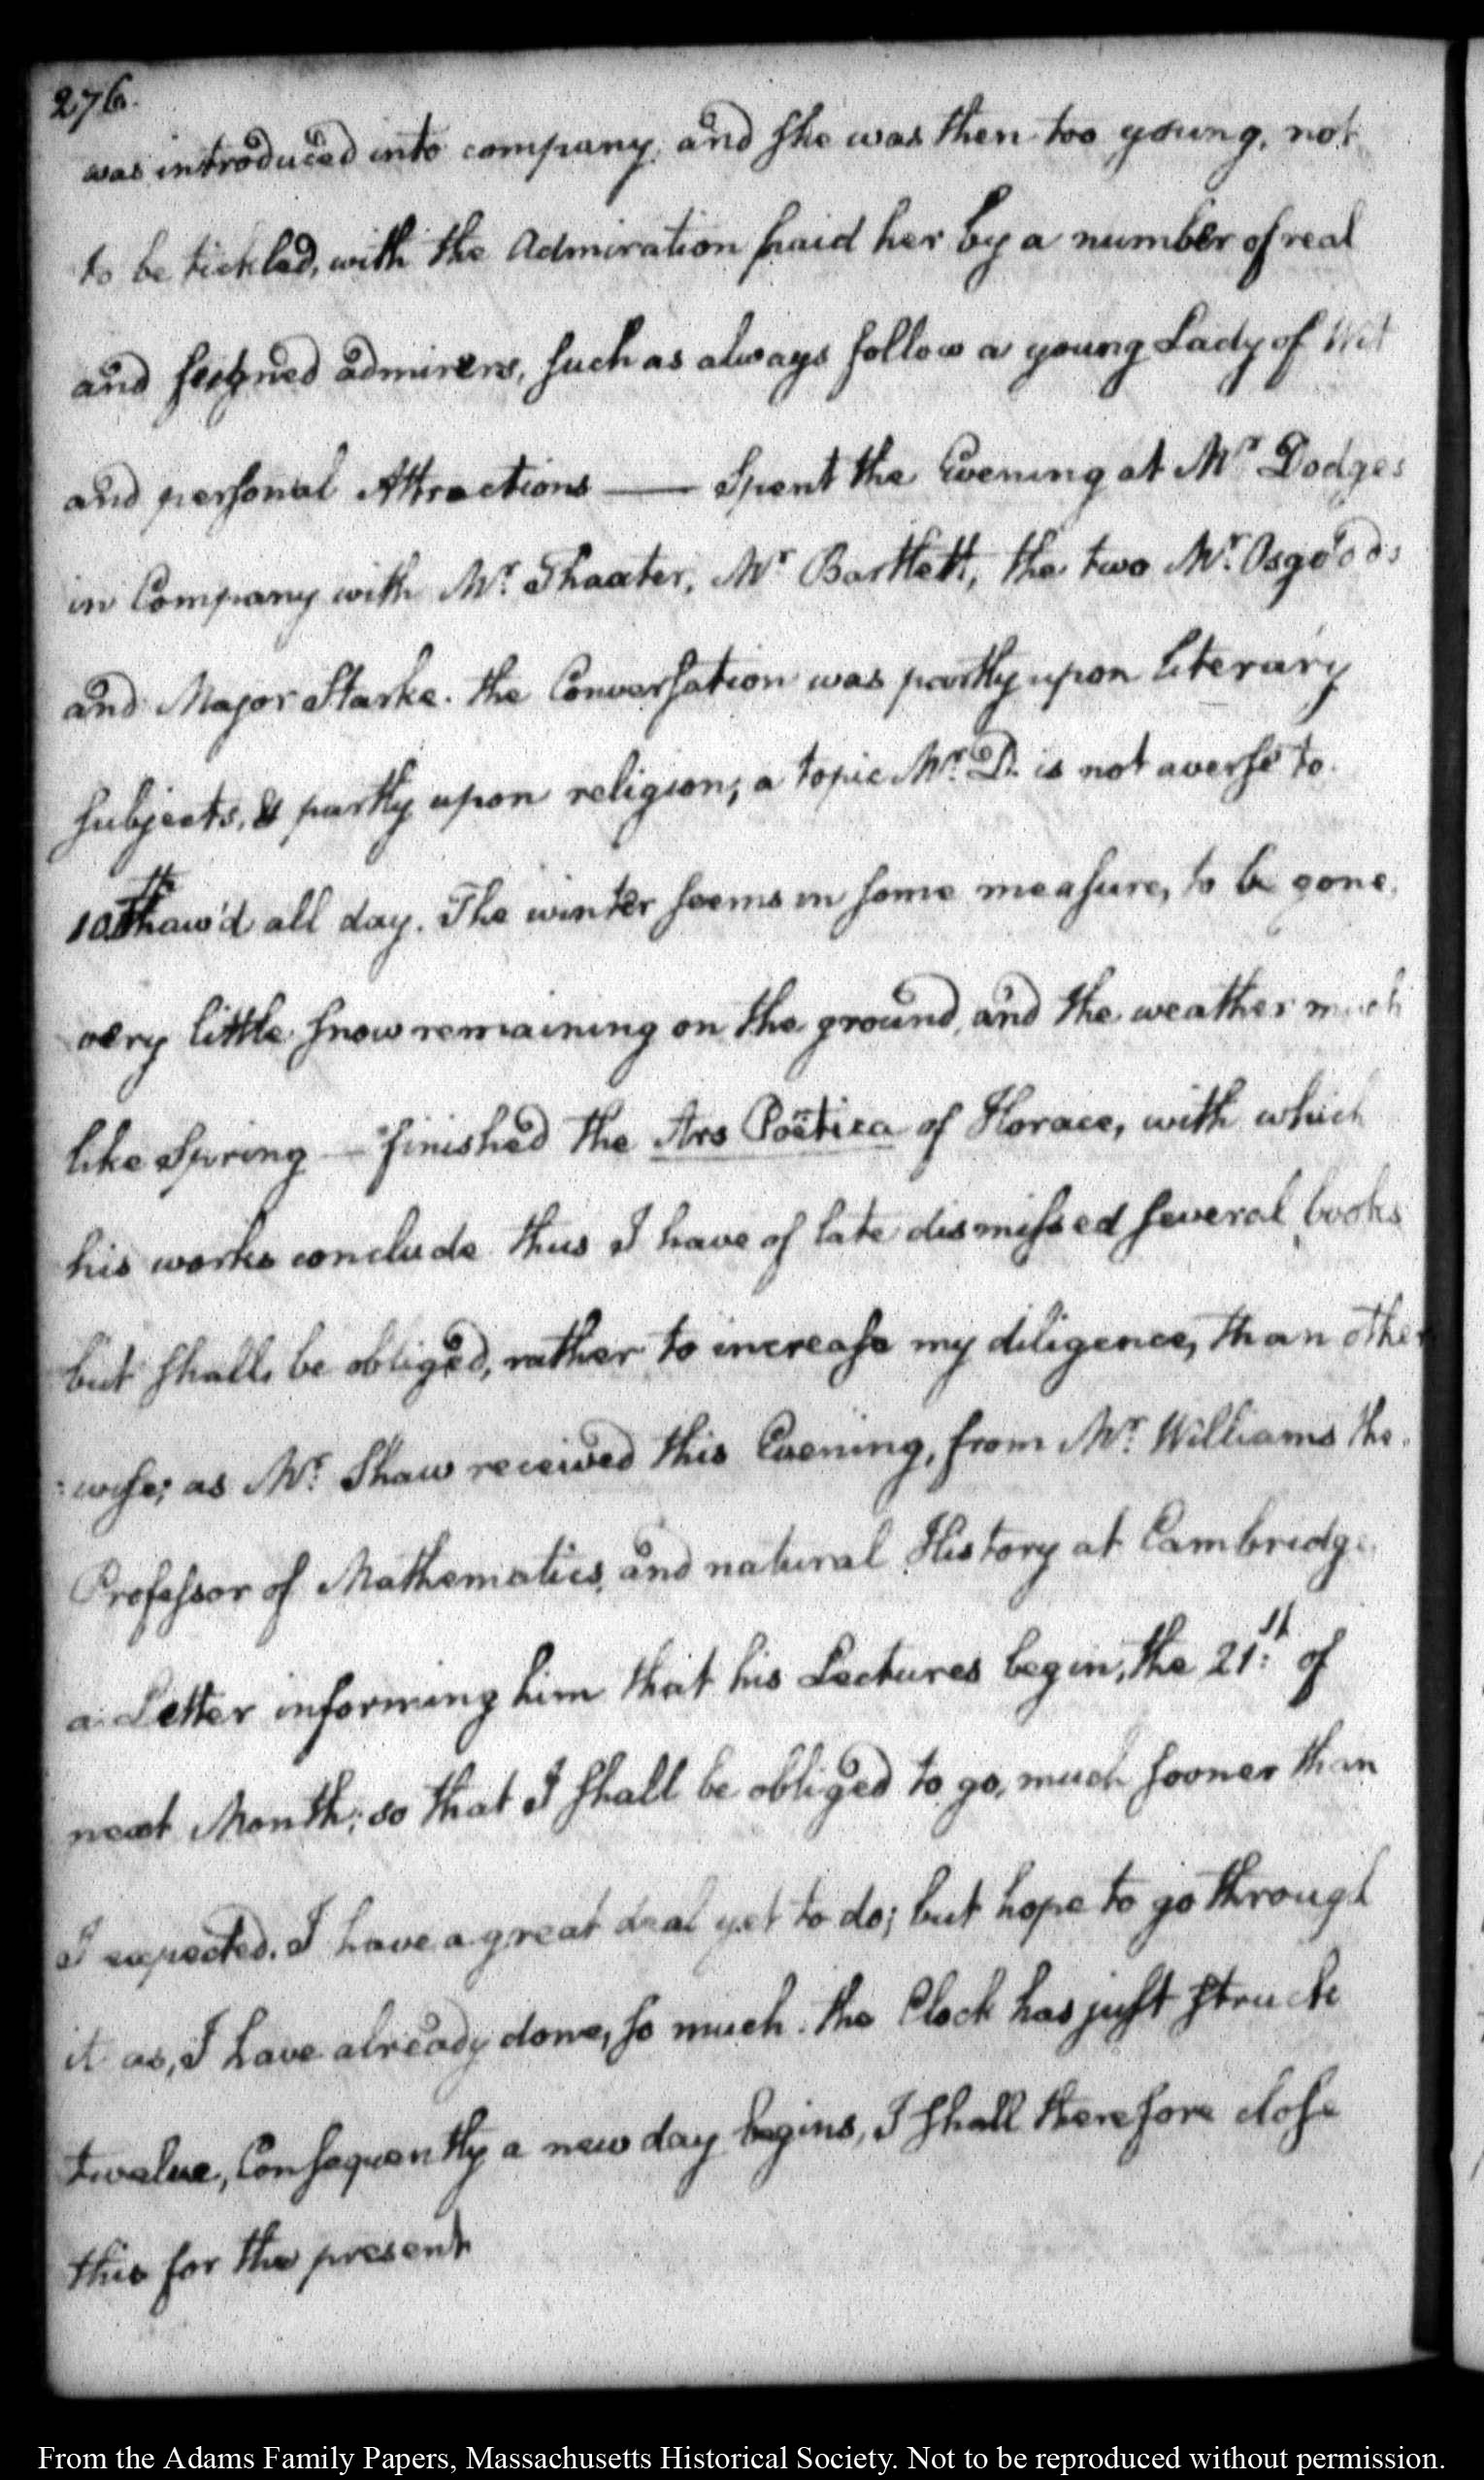 276.
was introduced into company, and she was then too young, not
to be tickled, with the Admiration paid her by a number of real
and feigned admirers, such as always follow a young Lady of Wit
and personal Attractions — Spent the Evening at Mr. Dodges
in Company with Mr. Thaxter, Mr. Bartlett, the two Mr. Osgoods
and Major Starke. the Conversation was partly upon literary
subjects, & partly upon religion; a topic Mr. D. is not averse to.
10th Thaw'd all day. The winter seems in some measure, to be gone,
very little snow remaining on the ground, and the weather much
like Spring — finished the Ars Poëtica of Horace, with which
his works conclude thus I have of late dismissed several books
but shall be obliged, rather to increase my diligence, than other
:wise; as Mr. Shaw received this Evening, from Mr. Williams the
Professor of Mathematics, and natural History at Cambridge
a Letter informing him that his Lectures begin, the 21:st of
next Month; so that I shall be obliged to go, much sooner than
I expected. I have a great deal yet to do; but hope to go through
it as, I have already done, so much. the Clock has just struck
twelve, Consequently a new day begins, I shall therefore close
this for the present
From the Adams Family Papers, Massachusetts Historical Society. Not to be reproduced without permission.